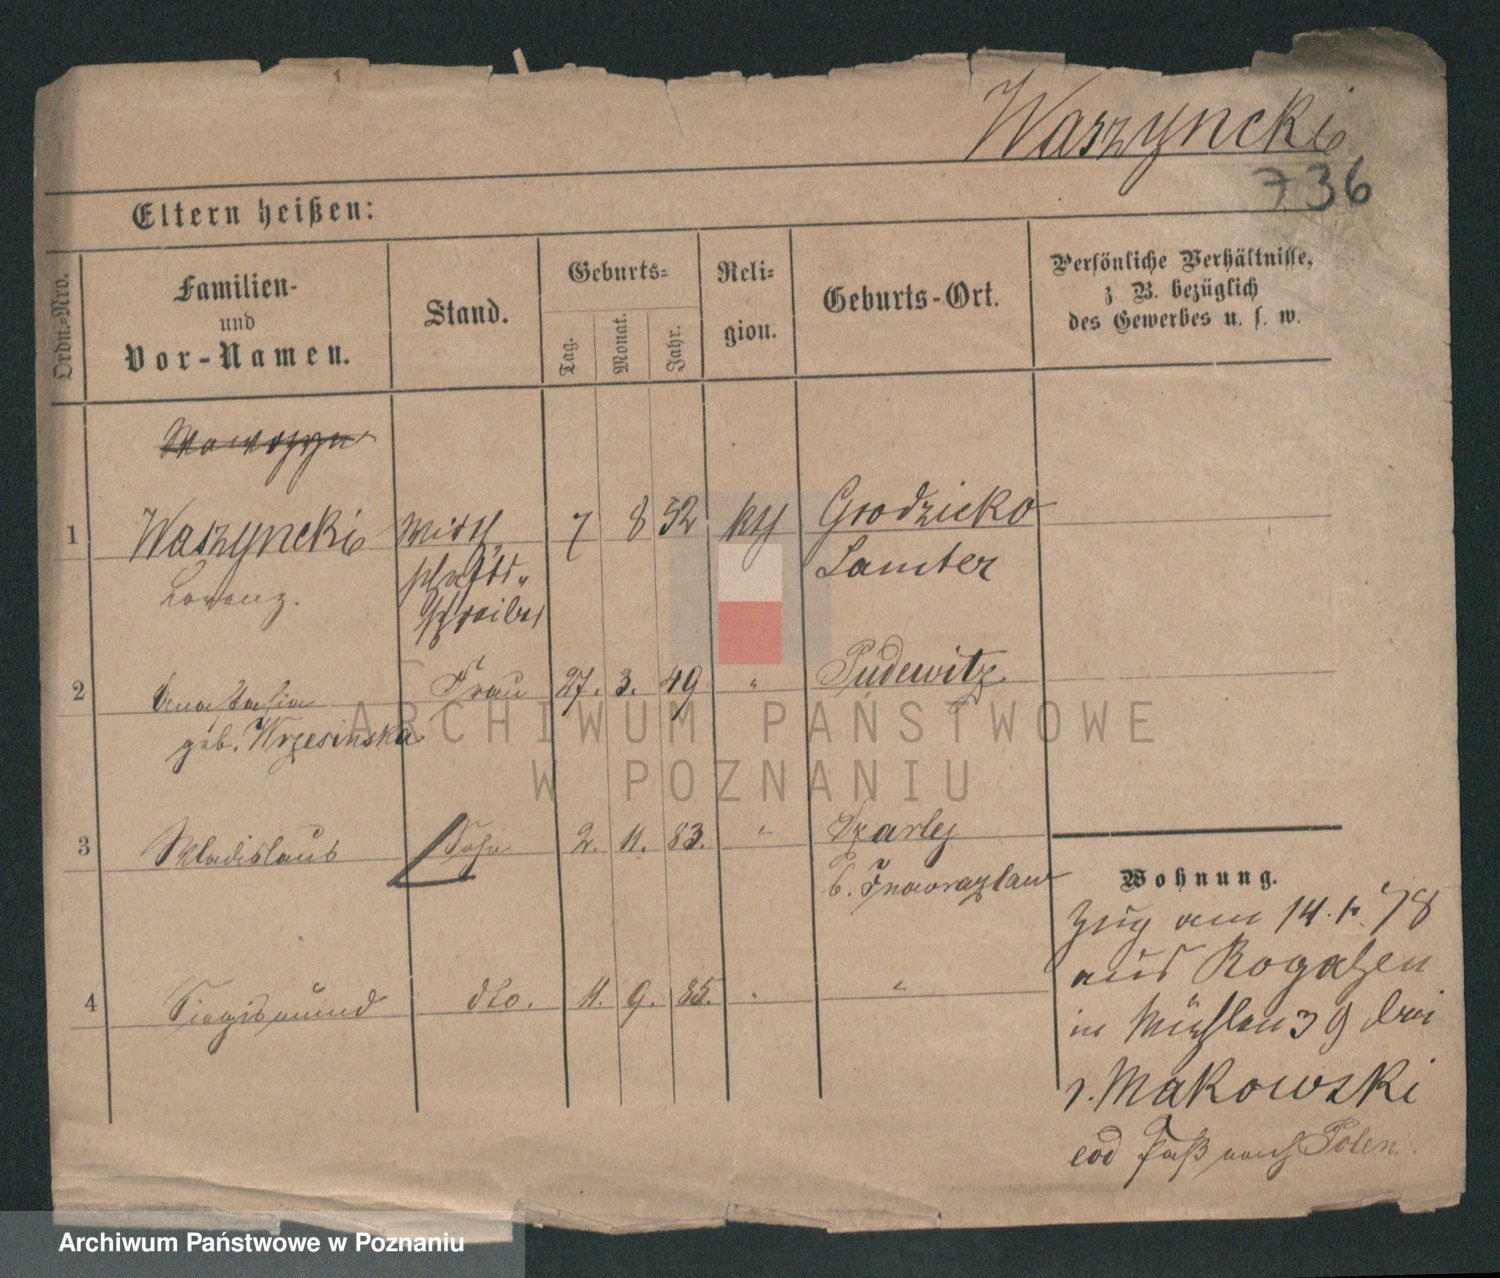 Waszyncki
736
Eltern heißen:
Ordn.-Nro.
Familien-
und
Vor-Namen.
Stand.
Geburts-
Tag.
Monat.
Jahr.
Reli-
gion.
Geburts-Ort.
Persönliche Verhältnisse,
z. B. bezüglich
des Gewerbes u. s. w.
1 Waszyncki Wirth 7 8 52 kth Grodzicko
Lorenz. schafts- Samter
schreiber
2 Anastasia Frau 27. 3. 49 " Pudewitz
geb. Wrzesinska
3 Wladislaus Sohn 2. 11. 83. " Szarley
b. Inowrazlaw
4 Siegismund dto. 11. 9. 85. " "
Wohnung.
Zug am 14. 78
aus Rogasen
in Mühlen 39 bei
v. Makowski
eod Paß nach Polen
ARCHIWUM PAŃSTWOWE
W POZNANIU
Archiwum Państwowe w Poznaniu